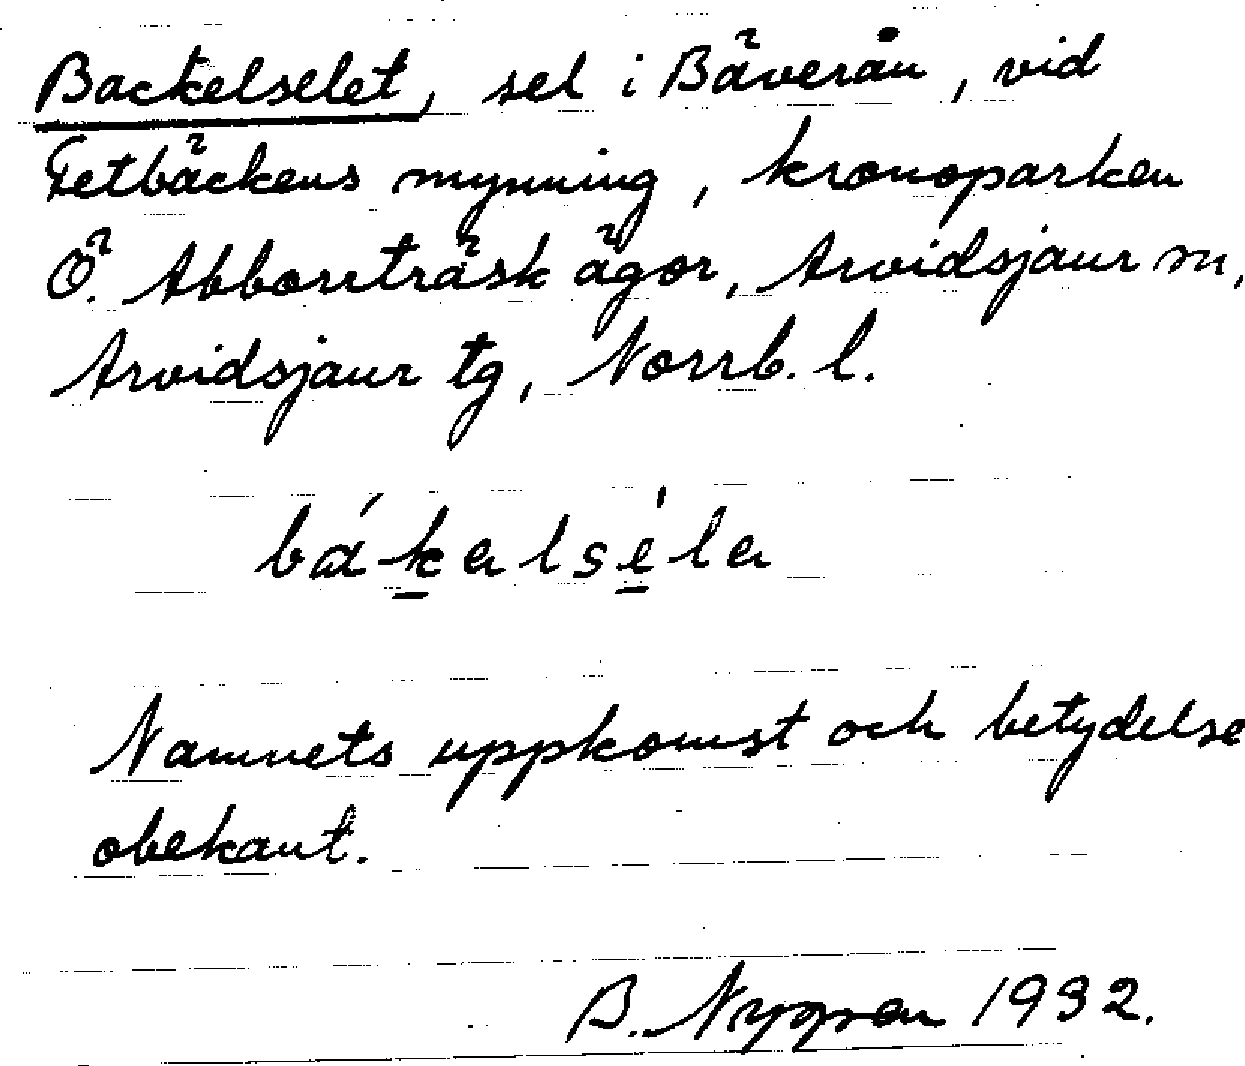 Backelselet, sel i Bäverån, vid
Tetbäckens mynning, kronoparken
Ö. Abborrträsk ägor, Arvidsjaur sn,
Arvidsjaur tg, Norrb. l.
bákalséla
Namnets uppkomst och betydelse
obekant.
B. Nygren 1932.